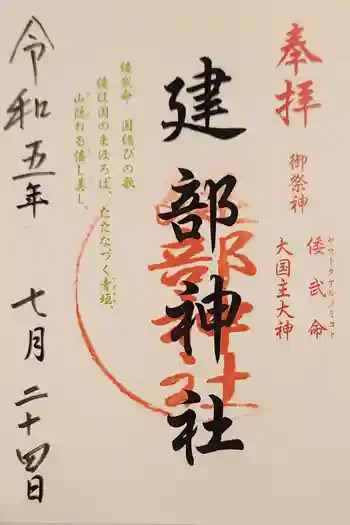 奉拝
御祭神
倭武命
ヤマトタケルノミコト
大国主大神
建部神社
倭武命 国偲びの歌
倭は国の まほろば、たたなづく青垣、
山隠れる倭し美し。
令和五年 七月 二十四日